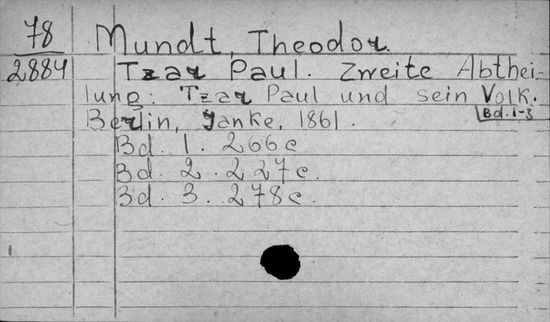 78 Mundt, Theodor.
2884 Tzar Paul. Zweite Abthei-
lung: Tzar Paul und sein Volk.
Berlin, Janke, 1861. Bd. 1-3
Bd. 1. 266 c
Bd. 2. 227 c.
Bd. 3. 278 c.